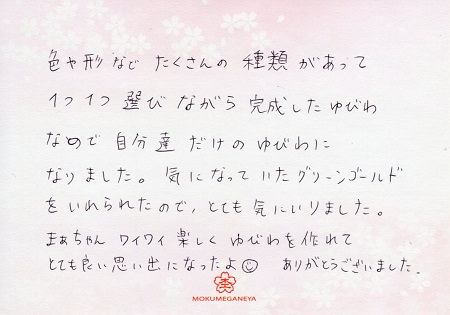 色や形など たくさんの 種類 があって
1つ1つ 選び ながら 完成したゆびわ
なので 自分達 だけの ゆびわに
なりました。 気になって いたグリーンゴールド
をいれられたので、とても 気にいりました。
まぁちゃん ワイワイ 楽しく ゆびわを 作れて
とても良い思い出になったよ☺ ありがとうございました。
MOKUMEGANEYA